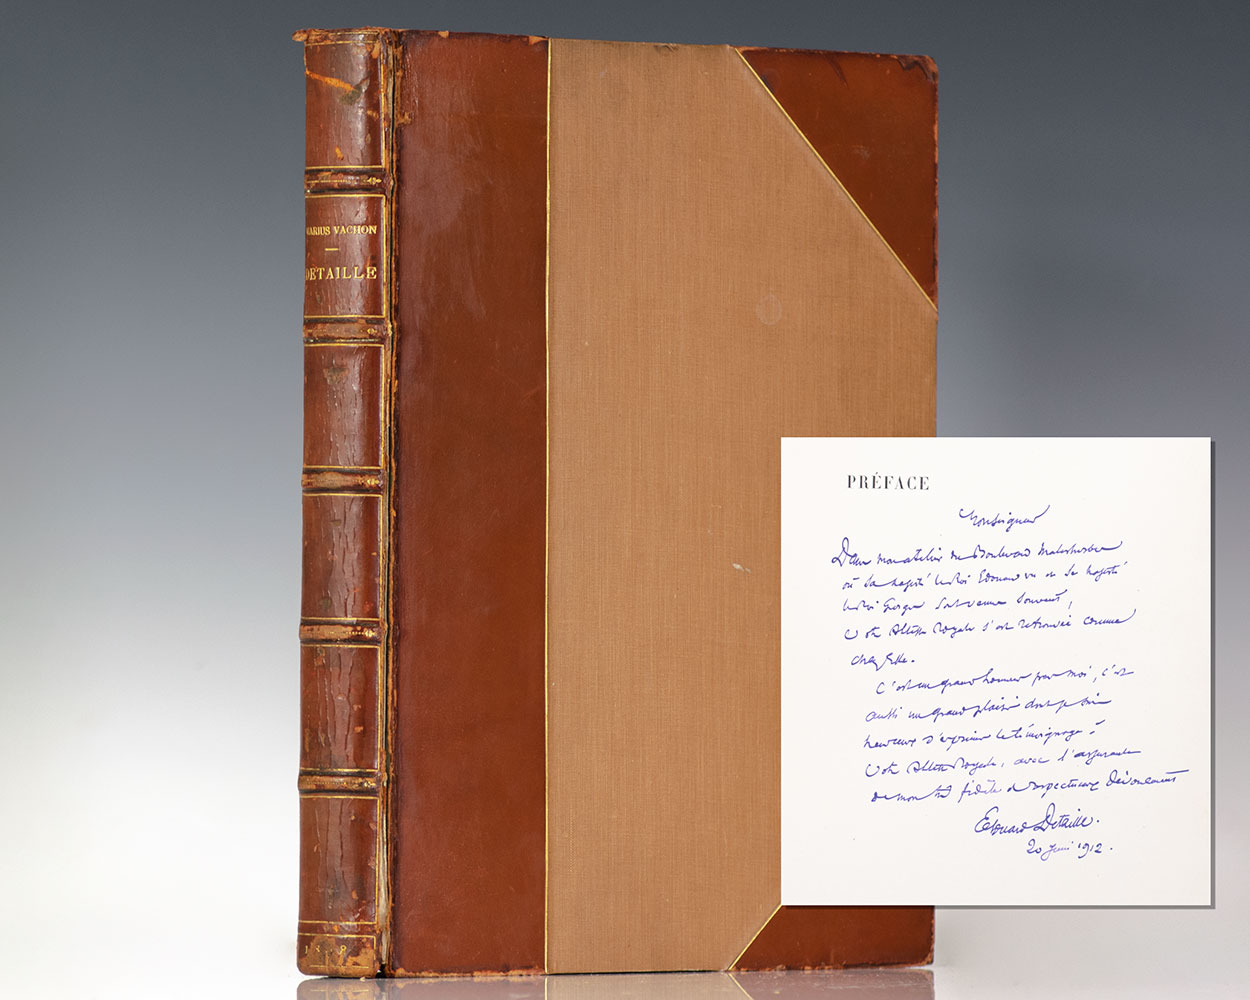 MARIUS VACHON
DETAILLE
PRÉFACE
Monseigneur
Dans mon atelier du Boulevard Malesherbes
où Sa Majesté le Roi Edouard VII et Sa Majesté
le Roi Georges sont venus souvent,
Votre Altesse Royale s'est retrouvée comme
chez Elle.
C'est un grand honneur pour moi, c'est
aussi un grand plaisir dont je suis
heureux d'exprimer le témoignage à
Votre Altesse Royale, avec l'assurance
de mon très fidèle et respectueux dévouement
Edouard Detaille.
20 Juin 1912.